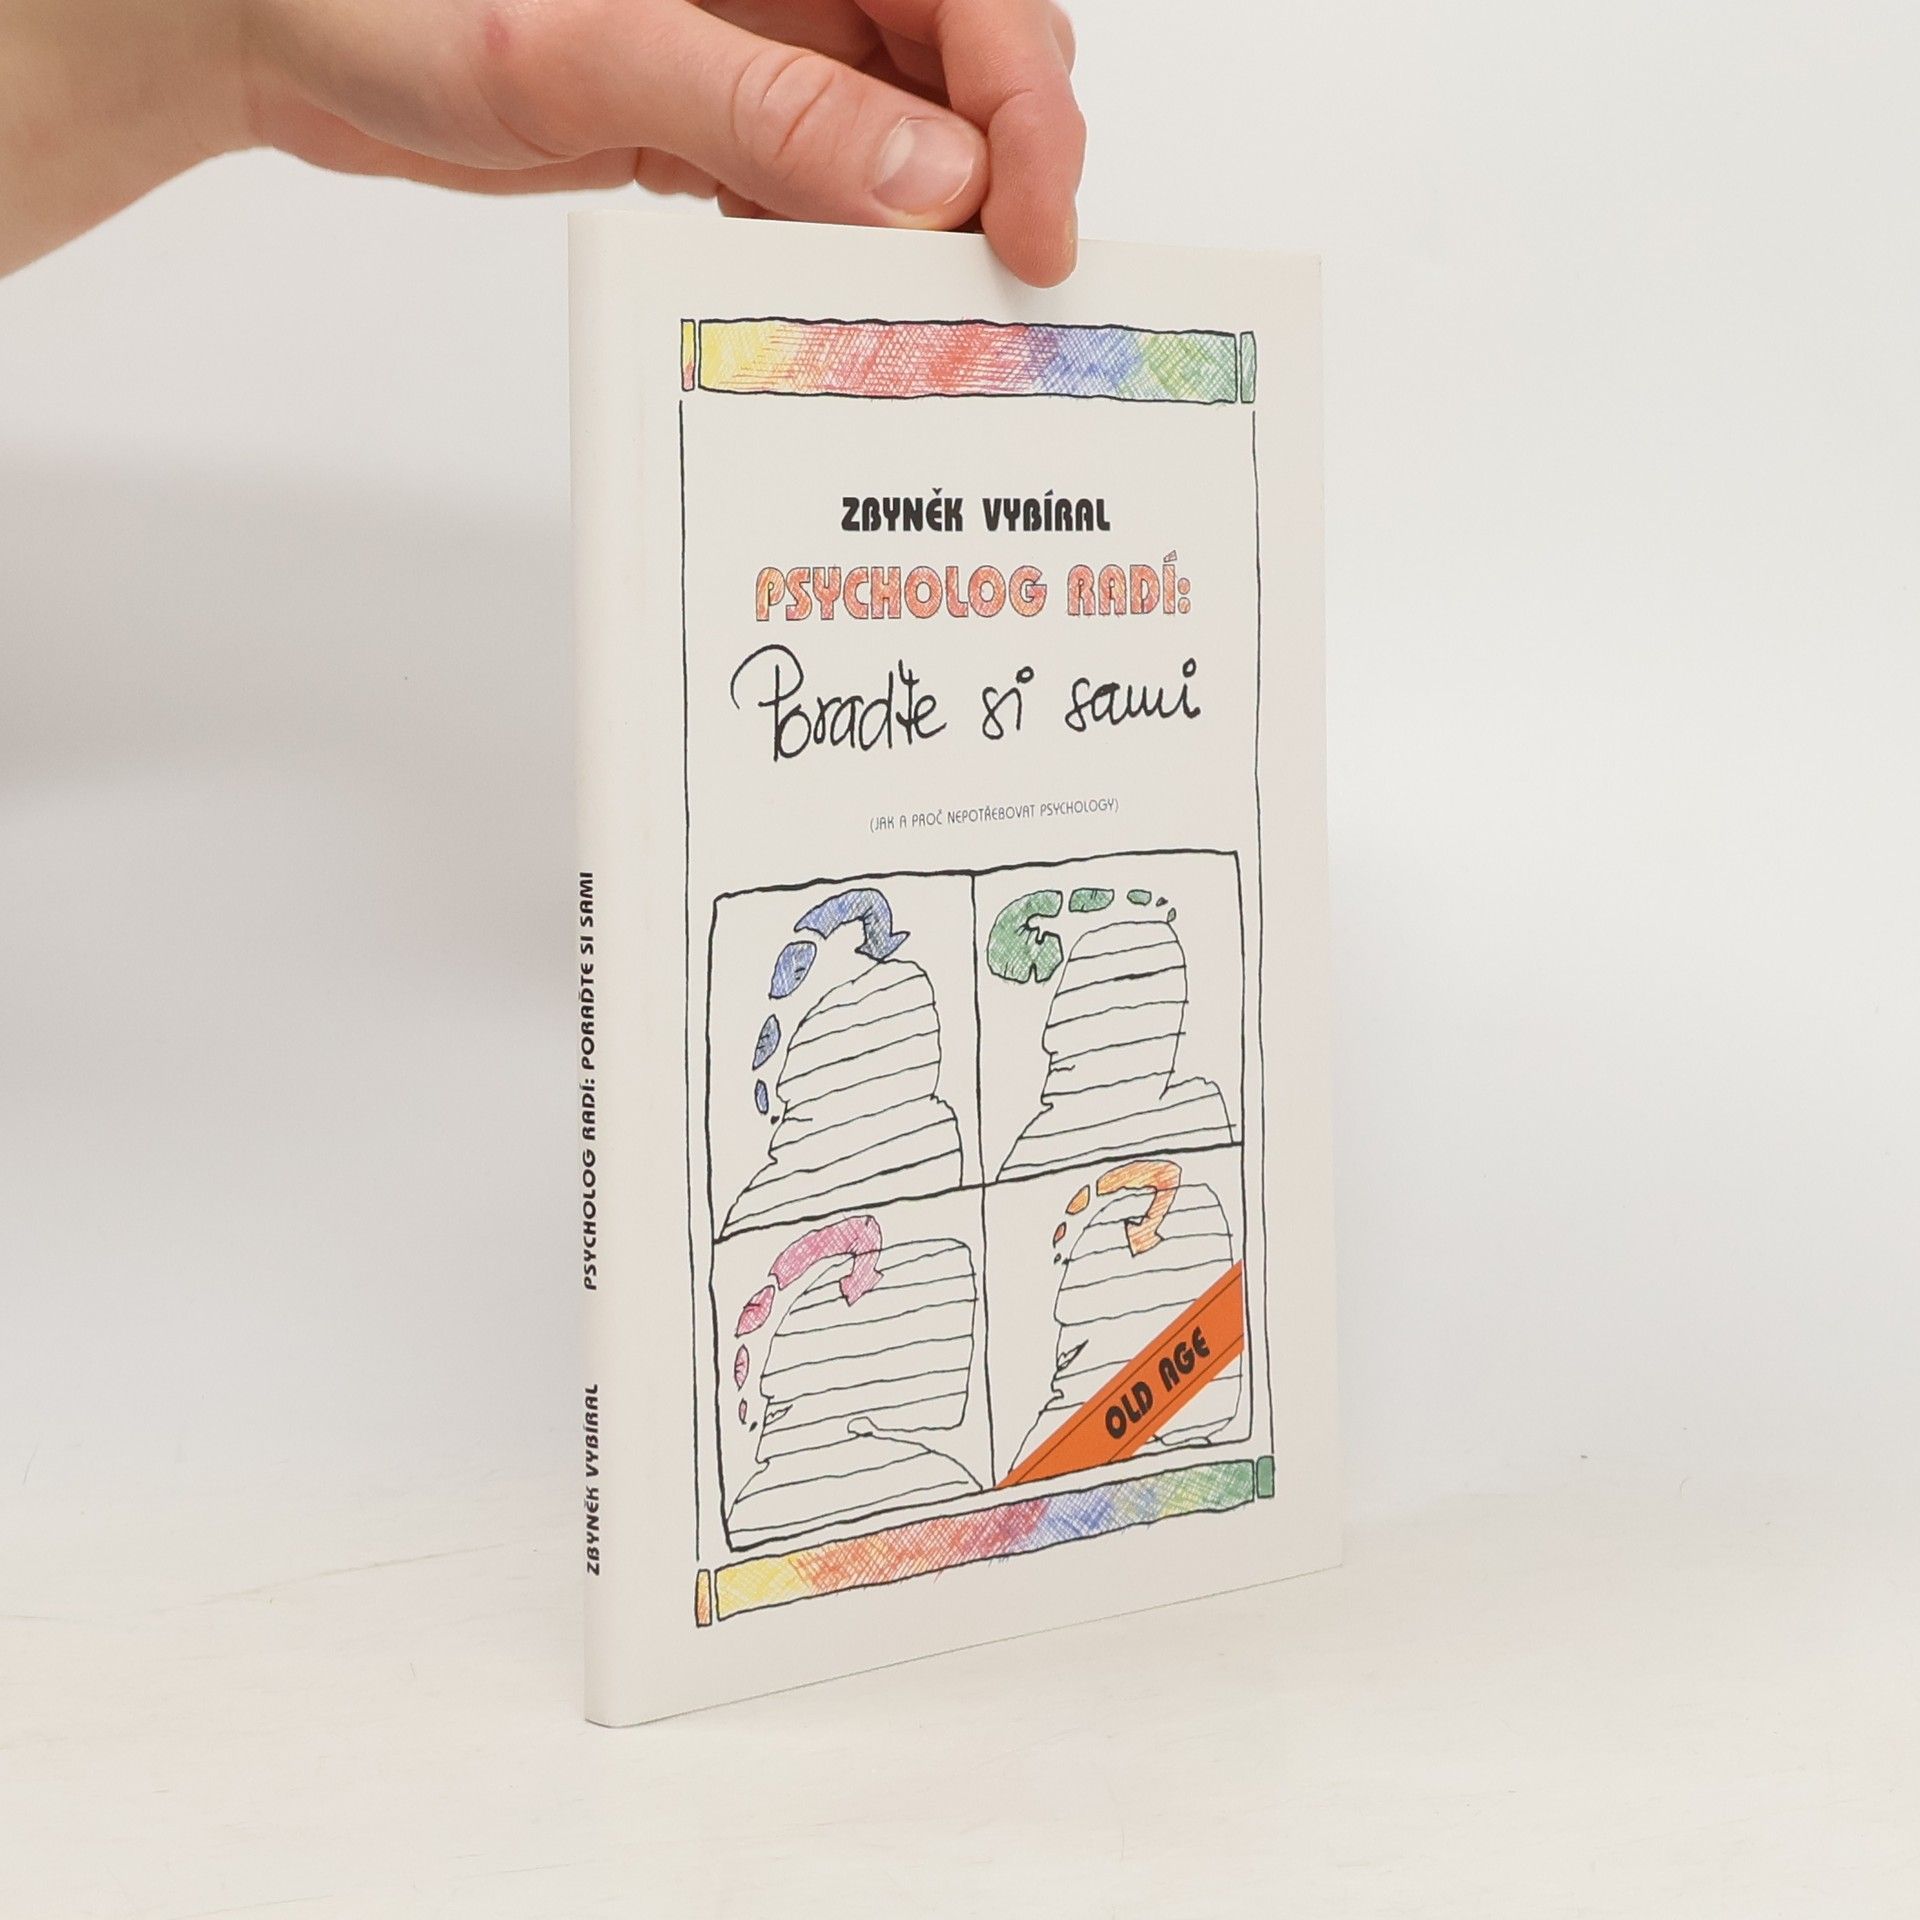 ZBYNĚK VYBÍRAL
PSYCHOLOG RADÍ:
Poraďte si sami
(JAK A PROČ NEPOTŘEBOVAT PSYCHOLOGY)
OLD AGE
ZBYNĚK VYBÍRAL PSYCHOLOG RADÍ: PORAĎTE SI SAMI